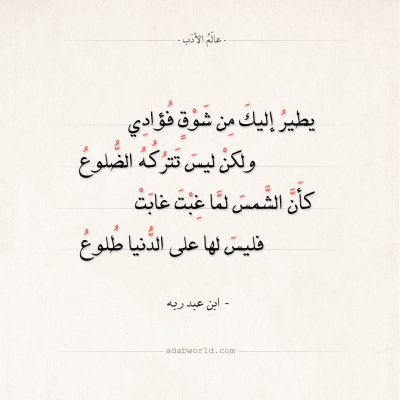 - عالَمُ الأدَب -
يطيرُ إليكَ مِن شَوْقٍ فُؤادِي
ولكنْ ليسَ تَترُكُهُ الضُّلوعُ
كأنَّ الشَّمسَ لمَّا غِبْتَ غابَتْ
فليسَ لها على الدُّنيا طُلوعُ
- ابن عبد ربه
adabworld.com